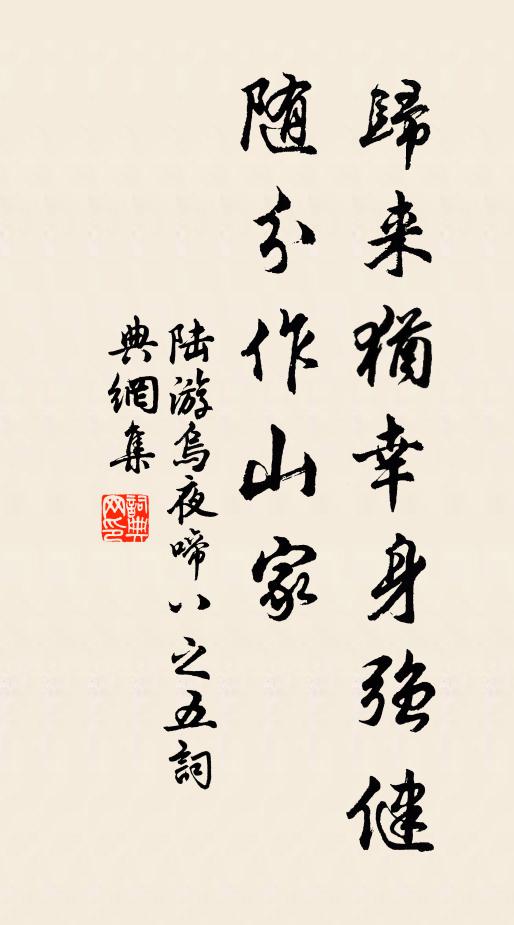 歸来猶幸身強健
随分作山家
陆游烏夜啼八之五詞
典網集
詞典网印